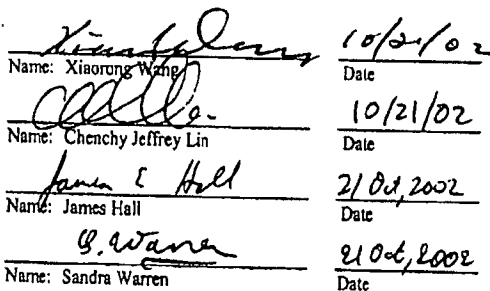 Xiaorong Wang 10/21/02
Name: Xiaorong Wang Date
10/21/02
Name: Chenchy Jeffrey Lin Date
James E Hall 21 Oct, 2002
Name: James Hall Date
S. Warren 21 Oct, 2002
Name: Sandra Warren Date